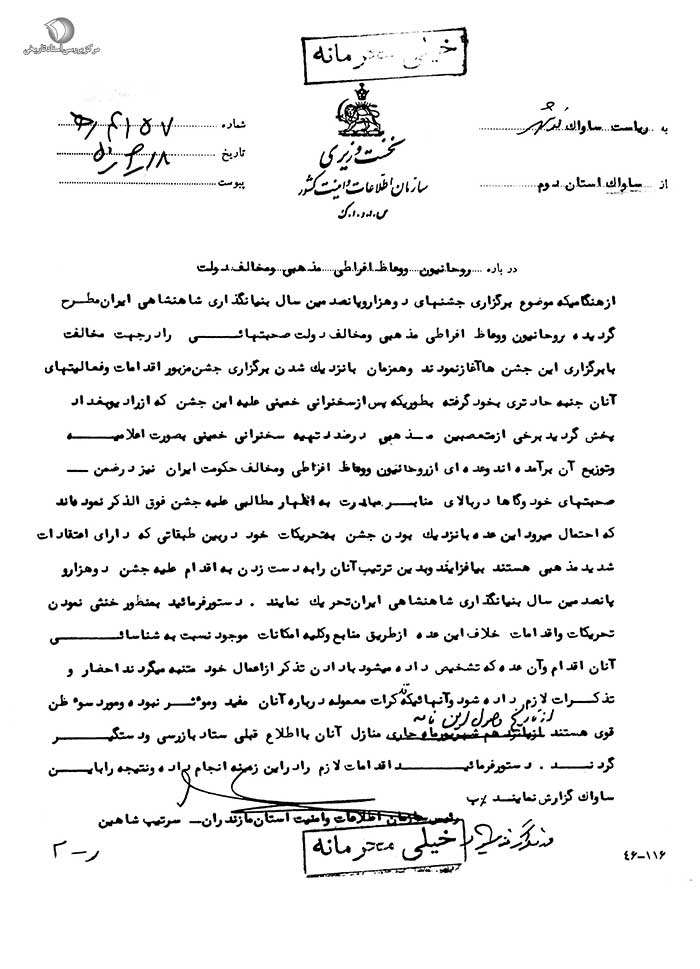 مرکز بررسی اسناد تاریخی
خیلی محرمانه
به ریاست ساواک
از ساواک استان دوم
نخست وزیری
سازمان اطلاعات و امنیت کشور
س.ا.و.ا.ک
شماره
تاریخ ۵۰/۶/۱۸
پیوست
درباره روحانیون ووعاظ افراطی مذهبی ومخالف دولت
ازهنگامیکه موضوع برگزاری جشنهای دوهزاروپانصدمین سال بنیانگذاری شاهنشاهی ایران مطرح
گردیده روحانیون ووعاظ افراطی مذهبی ومخالف دولت صحبتهائی رادرجهت مخالفت
بابرگزاری این جشن هاآغازنمودند وهمزمان بانزدیک شدن برگزاری جشن مزبور اقدامات وفعالیتهای
آنان جنبه حادتری بخودگرفته بطوریکه پس ازسخنرانی خمینی علیه این جشن که ازرادیوبغداد
پخش گردیدبرخی ازمتعصبین مذهبی درصددتهیه سخنرانی خمینی بصورت اعلامیه
وتوزیع آن برآمده اندوعده ای ازروحانیون ووعاظ افراطی ومخالف حکومت ایران نیزدرضمن
صحبتهای خودوگاها دربالای منابر مبادرت به اظهار مطالبی علیه جشن فوق الذکرنموده اند
که احتمال میروداین عده بانزدیک بودن جشن به تحریکات خود دربین طبقاتی که دارای اعتقادات
شدیدمذهبی هستند بیافزایند وبدین ترتیب آنان رابه دست زدن به اقدام علیه جشن دوهزارو
پانصدمین سال بنیانگذاری شاهنشاهی ایران تحریک نمایند . دستورفرمائید بمنظور خنثی نمودن
تحریکات واقدامات خلاف این عده ازطریق منابع وکلیه امکانات موجود نسبت به شناسائی
آنان اقدام وآن عده که تشخیص داده میشود بادادن تذکر ازاعمال خود متنبه میگردند احضار و
تذکرات لازم داده شود وآنهائیکه تذکرات معموله درباره آنان مفید وموثر نبوده ومورد سوء ظن
از تاریخ وصول این نامه
قوی هستند شهریورماه جاری منازل آنان بااطلاع قبلی ستاد بازرسی ودستگیر
گردند . دستورفرمائید اقدامات لازم رادراین زمینه انجام داده ونتیجه رابااین
ساواک گزارش نمایند
رئیس سازمان اطلاعات وامنیت استان مازندران ــ سرتیپ شاهین
خیلی محرمانه
۴۶-۱۱۶